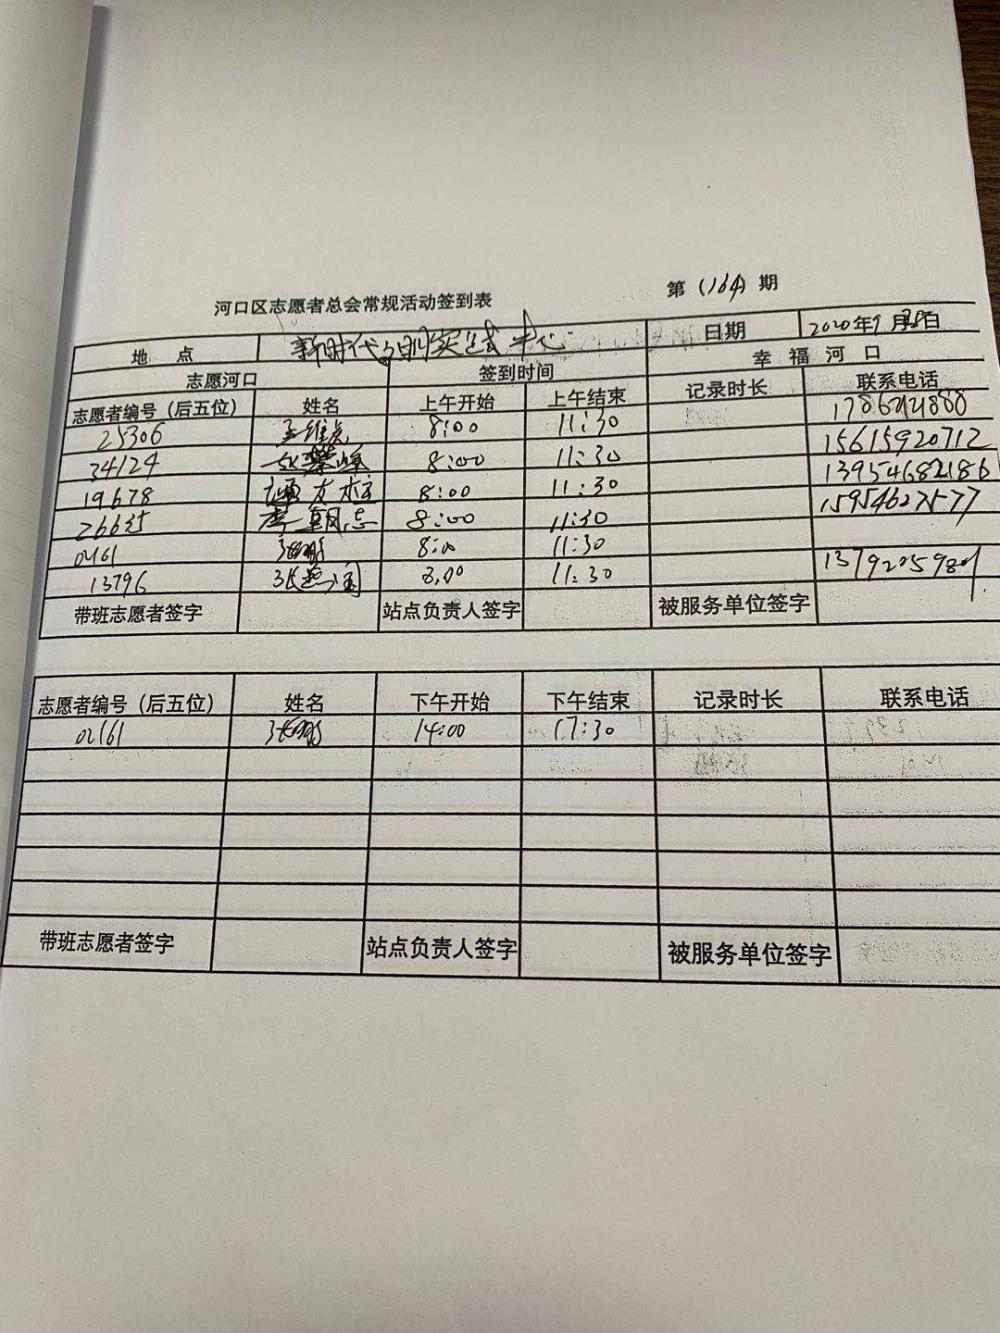 河口区志愿者总会常规活动签到表 第（164）期
地 点 新时代文明实践中心 日期 2020年9月 日
志愿河口 签到时间 幸 福 河 口
志愿者编号（后五位） 姓名 上午开始 上午结束 记录时长 联系电话
25306 8:00 11:30
34124 8:00 11:30 15615920712
19678 8:00 11:30 13954682186
李朝志 8:00 11:30 15954627577
02161 8:00 11:30
13796 8:00 11:30
带班志愿者签字 站点负责人签字 被服务单位签字
志愿者编号（后五位） 姓名 下午开始 下午结束 记录时长 联系电话
02161 14:00 17:30
带班志愿者签字 站点负责人签字 被服务单位签字